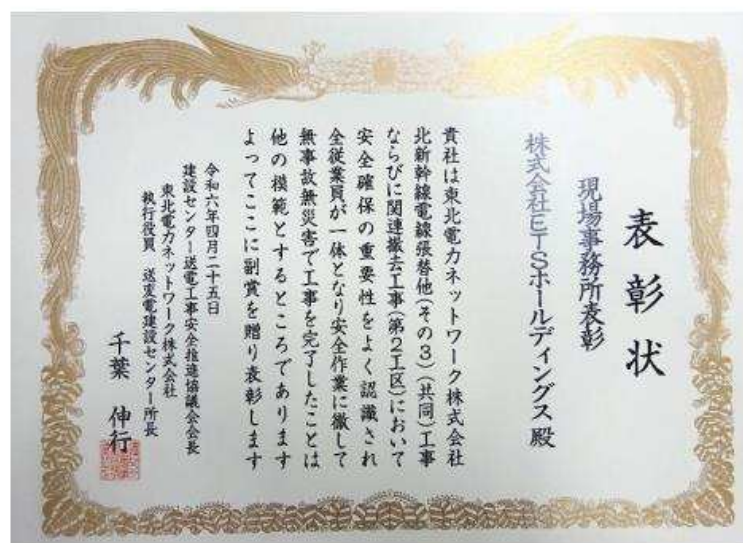 表彰状
現場事務所表彰
株式会社ETSホールディングス殿
貴社は東北電力ネットワーク株式会社
北新幹線電線張替他(その3)(共同)工事
ならびに関連撤去工事(第2工区)において
安全確保の重要性をよく認識され
全従業員が一体となり安全作業に徹して
無事故無災害で工事を完了したことは
他の模範とするところであります
よってここに副賞を贈り表彰します
令和六年四月二十五日
建設センター送電工事安全推進協議会会長
東北電力ネットワーク株式会社
執行役員 送変電建設センター所長
千葉 伸行